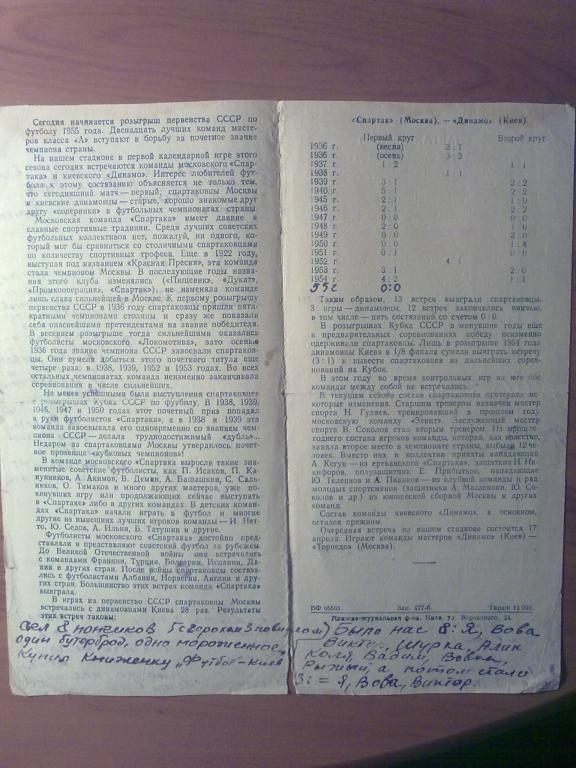 Сегодня начинается розыгрыш первенства СССР по
футболу 1955 года. Двенадцать лучших команд масте-
ров класса «А» вступают в борьбу за почетное звание
чемпиона страны.
На нашем стадионе в первой календарной игре этого
сезона сегодня встречаются команды московского «Спар-
така» и киевского «Динамо». Интерес любителей фут-
бола к этому состязанию объясняется не только тем,
что сегодняшний матч — первый; спартаковцы Москвы
и киевские динамовцы — старые, хорошо знакомые друг
другу «соперники» в футбольных чемпионатах страны.
Московская команда «Спартака» имеет давние и
славные спортивные традиции. Среди лучших советских
футбольных коллективов нет, пожалуй, ни одного, ко-
торый мог бы сравниться со столичными спартаковцами
по количеству спортивных трофеев. Еще в 1922 году,
выступая под названием «Красная Пресня», эта коман-
да стала чемпионом Москвы. В последующие годы назва-
ния этого клуба изменялись («Пищевик», «Дукат»,
«Промкооперация», «Спартак»), не изменяла команде
лишь слава сильнейшей в Москве. К первому розыгрышу
первенства СССР в 1936 году спартаковцы пришли пяти-
кратными чемпионами столицы и сразу же показали
себя опаснейшими претендентами на звание победителя.
В весеннем розыгрыше тогда сильнейшими оказались
футболисты московского «Локомотива», зато осенью
1936 года звание чемпиона СССР завоевали спартаков-
цы. Они сумели добиться этого почетного титула еще
четыре раза: в 1938, 1939, 1952 и 1953 годах. Во всех
остальных чемпионатах команда неизменно заканчивала
соревнования в числе сильнейших.
Не менее успешными были выступления спартаковцев
в розыгрышах Кубка СССР по футболу. В 1938, 1939,
1946, 1947 и 1950 годах этот почетный приз попадал
в руки футболистов «Спартака», а в 1938 и 1939 эта
команда завоевывала его одновременно со званием чем-
пиона СССР — делала труднодостижимый «дубль»...
Недаром за спартаковцами Москвы утвердилось почет-
ное прозвище «кубковых чемпионов»!
В команде московского «Спартака» выросли такие зна-
менитые советские футболисты, как П. Исаков, П. Ка-
нунников, А. Акимов, В. Демин, А. Башашкин, С. Саль-
ников, О. Тимаков и много других мастеров, уже по-
кинувших игру или продолжающих сейчас выступать
в «Спартаке» либо в других командах. В детских коман-
дах «Спартака» начали играть в футбол и многие
другие из нынешних лучших игроков команды — И. Нет-
то, Ю. Седов, А. Ильин, Б. Татушин и другие.
Футболисты московского «Спартака» достойно пред-
ставляли и представляют советский футбол за рубежом.
До Великой Отечественной войны они встречались
с командами Франции, Турции, Болгарии, Испании, Да-
нии и других стран. После войны спартаковцы состяза-
лись с футболистами Албании, Норвегии, Англии и дру-
гих стран. Большинство этих встреч команда «Спартака»
выиграла.
В играх на первенство СССР спартаковцы Москвы
встречались с динамовцами Киева 28 раз. Результаты
этих встреч таковы:
«Спартак» (Москва). — «Динамо» (Киев)
Первый круг Второй круг
1936 г. (весна) 3 : 1
1936 г. (осень) 3 : 3
1937 г. 1 : 2 1 : 1
1938 г. 1 : 1
1939 г. 3 : 1 2 : 2
1940 г. 5 : 1 2 : 2
1945 г. 2 : 1 1 : 0
1946 г. 2 : 1 2 : 2
1947 г. 0 : 0 0 : 0
1948 г. 2 : 0 1 : 0
1949 г. 0 : 0 3 : 0
1950 г. 0 : 0 1 : 4
1951 г. 0 : 1 0 : 0
1952 г. 4 : 1
1953 г. 3 : 1 2 : 0
1954 г. 4 : 2 1 : 1
55 г 0:0
Таким образом, 13 встреч выиграли спартаковцы,
3 игры — динамовцы, 12 встреч закончились вничью,
в том числе — пять состязаний со счетом 0 : 0.
В розыгрышах Кубка СССР в минувшие годы еще
в предварительных соревнованиях победу неизменно
одерживали спартаковцы. Лишь в розыгрыше 1954 года
динамовцы Киева в 1/8 финала сумели выиграть встречу
(3 : 1) и вывести спартаковцев из дальнейших соревно-
ваний на Кубок.
В этом году во время контрольных игр на юге обе
команды между собой не встречались.
В текущем сезоне состав спартаковцев претерпел не-
которые изменения. Старшим тренером назначен мастер
спорта Н. Гуляев, тренировавший в прошлом году
московскую команду «Зенит». Заслуженный мастер
спорта В. Соколов стал вторым тренером. Из прошло-
годнего состава игроков команды, которая, как известно,
заняла второе место в чемпионате страны, выбыли 12 че-
ловек. Вместо них в коллектив приняты нападающий
А. Кегун — из ереванского «Спартака», защитник Н. Ни-
кифоров, полузащитник Е. Прибытков, нападающие
Ю. Теленков и А. Пивинов — из клубной команды и ряд
молодых спортсменов (защитники А. Масленкин, Ю. Со-
колов и др.) из юношеской сборной Москвы и других
команд.
Состав команды киевского «Динамо», в основном,
остался прежним.
Очередная встреча на нашем стадионе состоится 17
апреля. Играют команды мастеров «Динамо» (Киев) —
«Торпедо» (Москва).
БФ 05503. Зак. 477-б. Тираж 15 000.
Книжно-журнальная ф-ка. Киев, ул. Воровского, 24.
Съел 8 пончиков (5 с горохом 3 повидлом)
один бутерброд, одно мороженное,
Купил Книженку „Футбол-Киев
Было нас 8: Я, Вова
Виктор, Шурка, Алик
Коля, Вадим, Вовка,
Рыжий, а потом стали
3: = Я, Вова, Виктор.